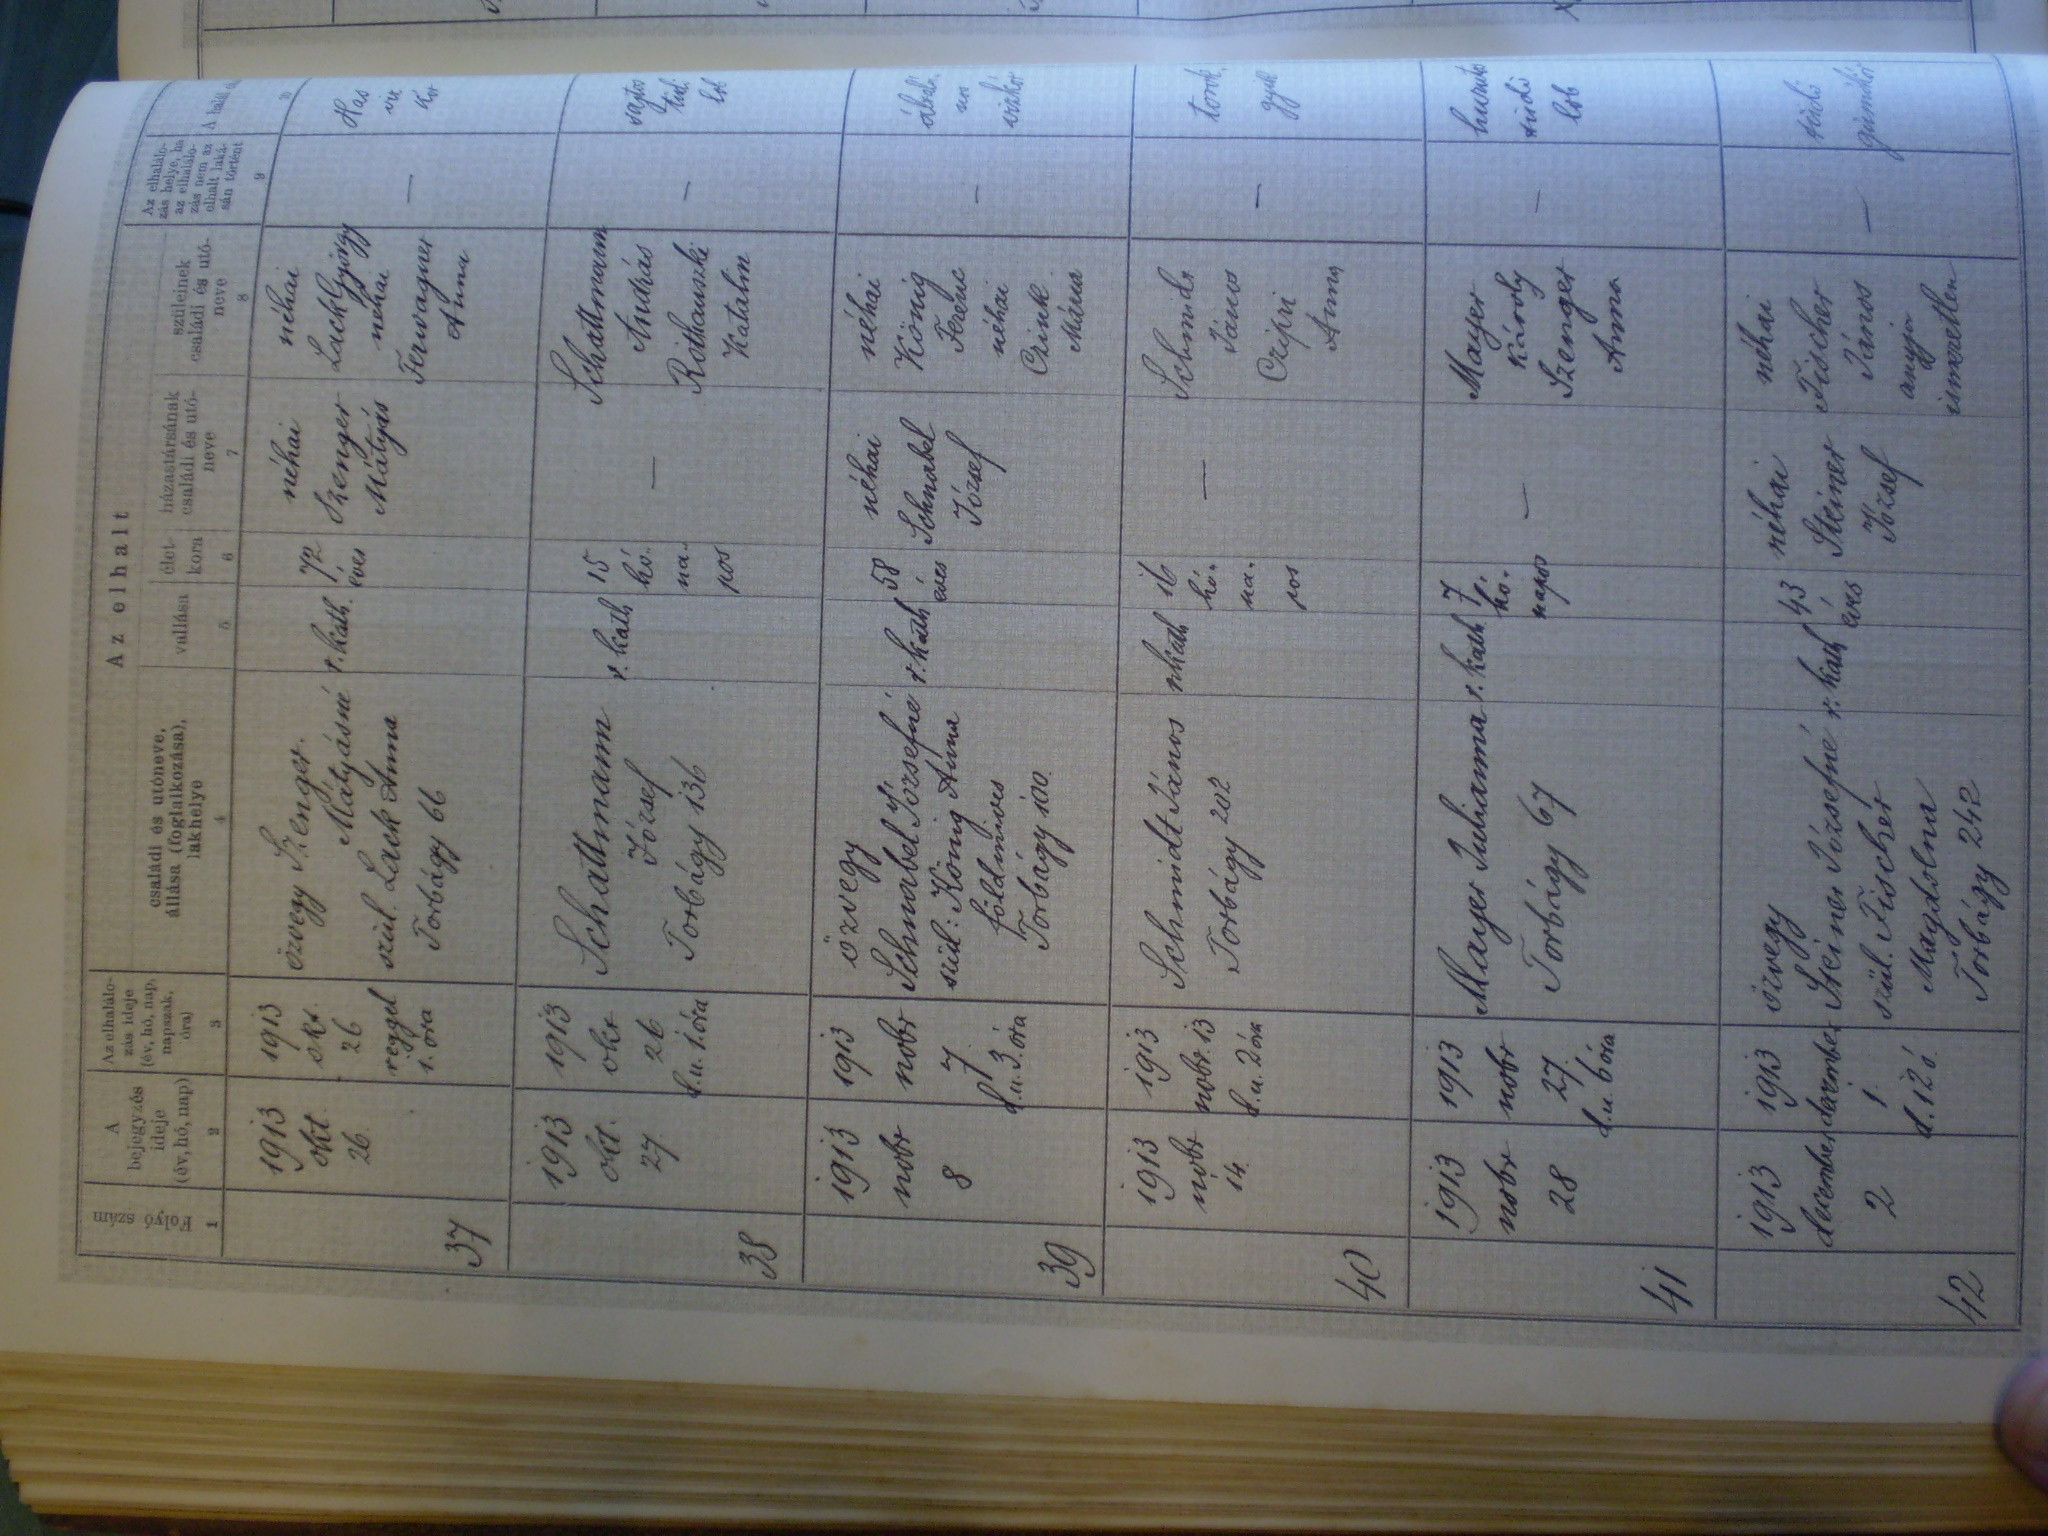 Az elhalt
Folyó szám
A bejegyzés ideje (év, hó, nap)
Az elhalálo-
zás ideje
(év, hó, nap,
napszak,
óra)
családi és utóneve,
állása (foglalkozása),
lakhelye
vallása
élet-
kora
házastársának
családi és utó-
neve
szüleinek
családi és utó-
neve
Az elhalálo-
zás helye, ha
az elhalálo-
zás nem az
elhalt laká-
sán történt
A halál
1
2
3
4
5
6
7
8
9
37
1913
okt.
26.
1913
okt.
26
reggel
1. óra
özvegy Szenger
Mátyásné
szül. Lack Anna
Torbágy 66
r. kath.
72
éves
néhai
Szenger
Mátyás
néhai
Lack György
néhai
Anna
—
Has
kór
38
1913
okt.
27.
1913
okt
26
d.u. 1. óra
Schattmann
József
Torbágy 136
r. kath
15
hó-
na-
pos
—
Schattmann
András
Katalin
—
tüdő
lob
39
1913
nobr
8
1913
nobr
7
d.u. 3. óra
özvegy
Schnabel Józsefné
szül: König Anna
földmives
Torbágy 100.
r. kath
58
éves
néhai
Schnabel
József
néhai
König
Ferenc
néhai
Czink
Mária
—
40
1913
nobr
14.
1913
nobr. 13
d.u. 2 óra
Schmidt János
Torbágy 202
rkath
16
hó-
na-
pos
—
Schmidt
János
Czipri
Anna
—
torok
gyík
41
1913
nobr
28
1913
nobr
27.
d.u. 6 óra
Mayer Julianna
Torbágy 67
r. kath
7
hó-
napos
—
Mayer
Károly
Szenger
Anna
—
hurutos
tüdő
lob
42
1913
december
2
1913
december
1.
d. 12 ó.
özvegy
Steiner Józsefné
szül. Fischer
Magdolna
Torbágy 242
r. kath
43
éves
néhai
Steiner
József
néhai
Fischer
János
anyja
ismeretlen
—
tüdő
gümőkór